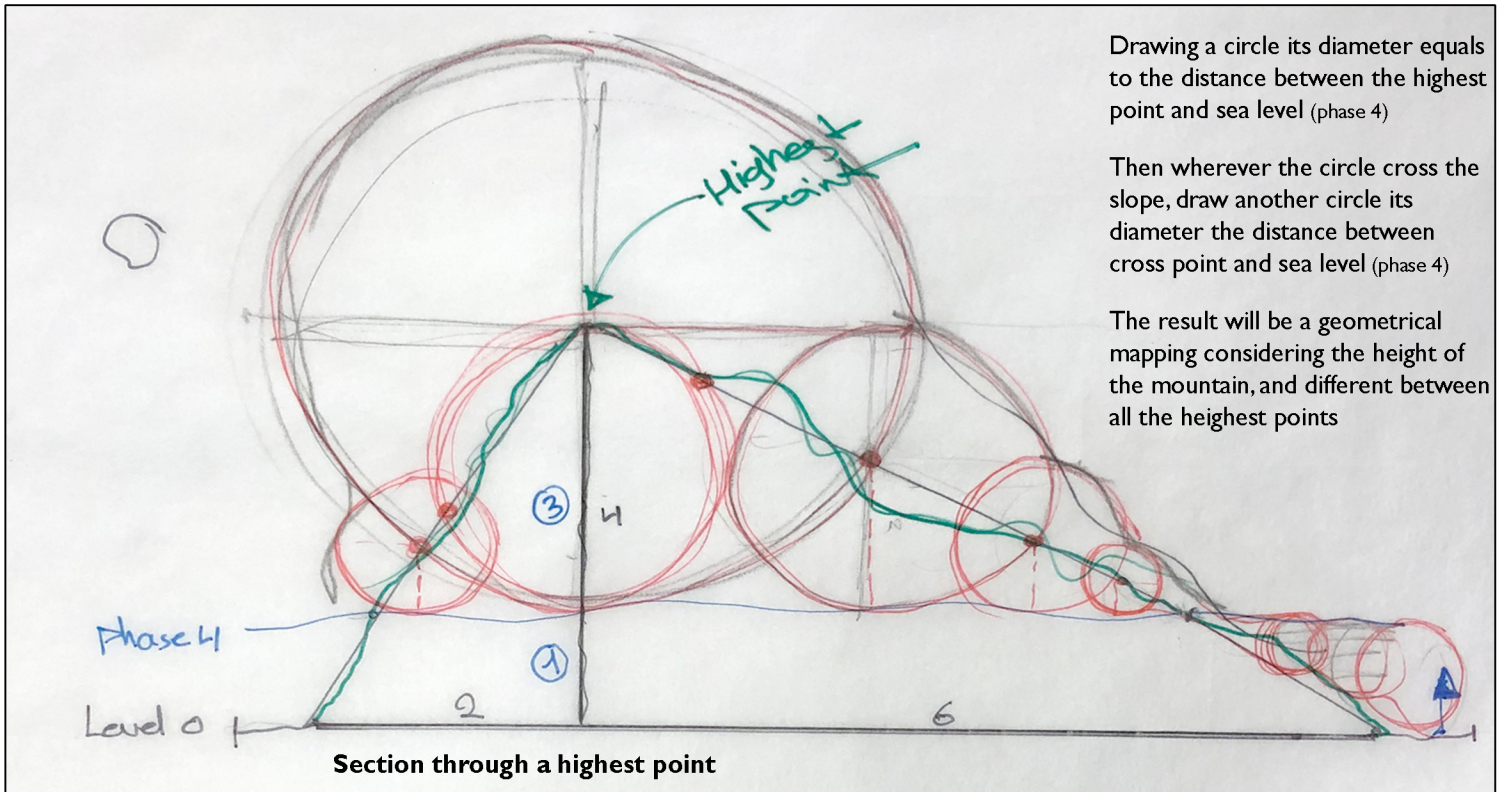 Drawing a circle its diameter equals
to the distance between the highest
point and sea level (phase 4)
Then wherever the circle cross the
slope, draw another circle its
diameter the distance between
cross point and sea level (phase 4)
The result will be a geometrical
mapping considering the height of
the mountain, and different between
all the heighest points
Highest
point
3
4
phase 4
1
Level 0
2
6
Section through a highest point